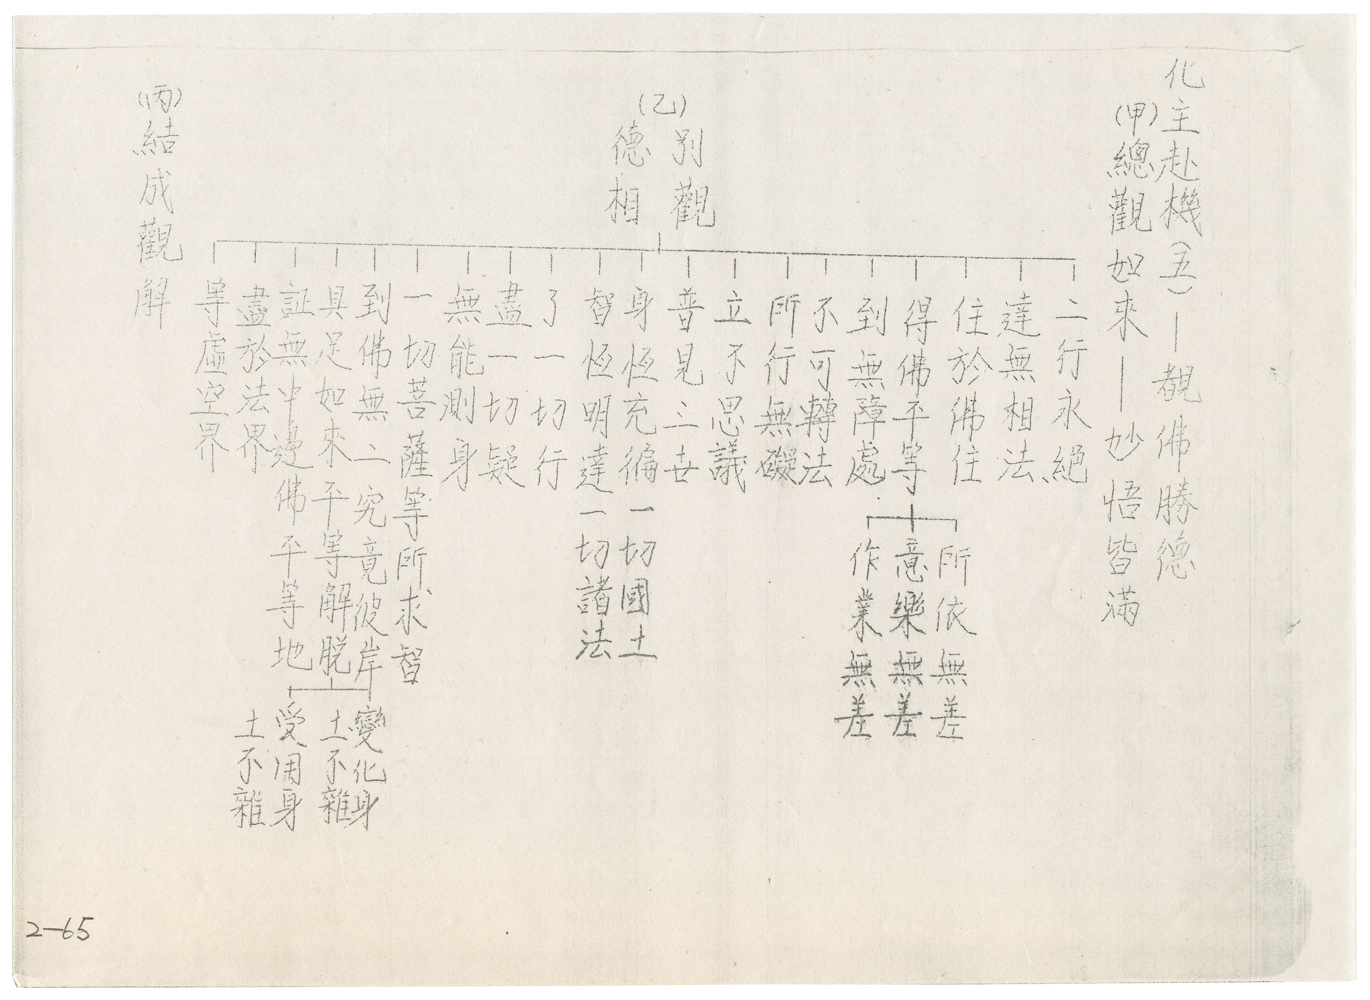 化主赴機(五)—覩佛勝德
(甲)總觀如來—妙悟皆滿
(乙)別觀
德相
二行永絕
達無相法
住於佛住
得佛平等
所依無差
意樂無差
作業無差
到無障處
不可轉法
所行無礙
立不思議
普見三世
身恆充徧一切國土
智恆明達一切諸法
了一切行
盡一切疑
無能測身
一切菩薩等所求智
到佛無二究竟彼岸
具足如來平等解脫
変化身
土不雜
受用身
土不雜
証無中邊佛平等地
盡於法界
等虛空界
(丙)結成觀解
2-65